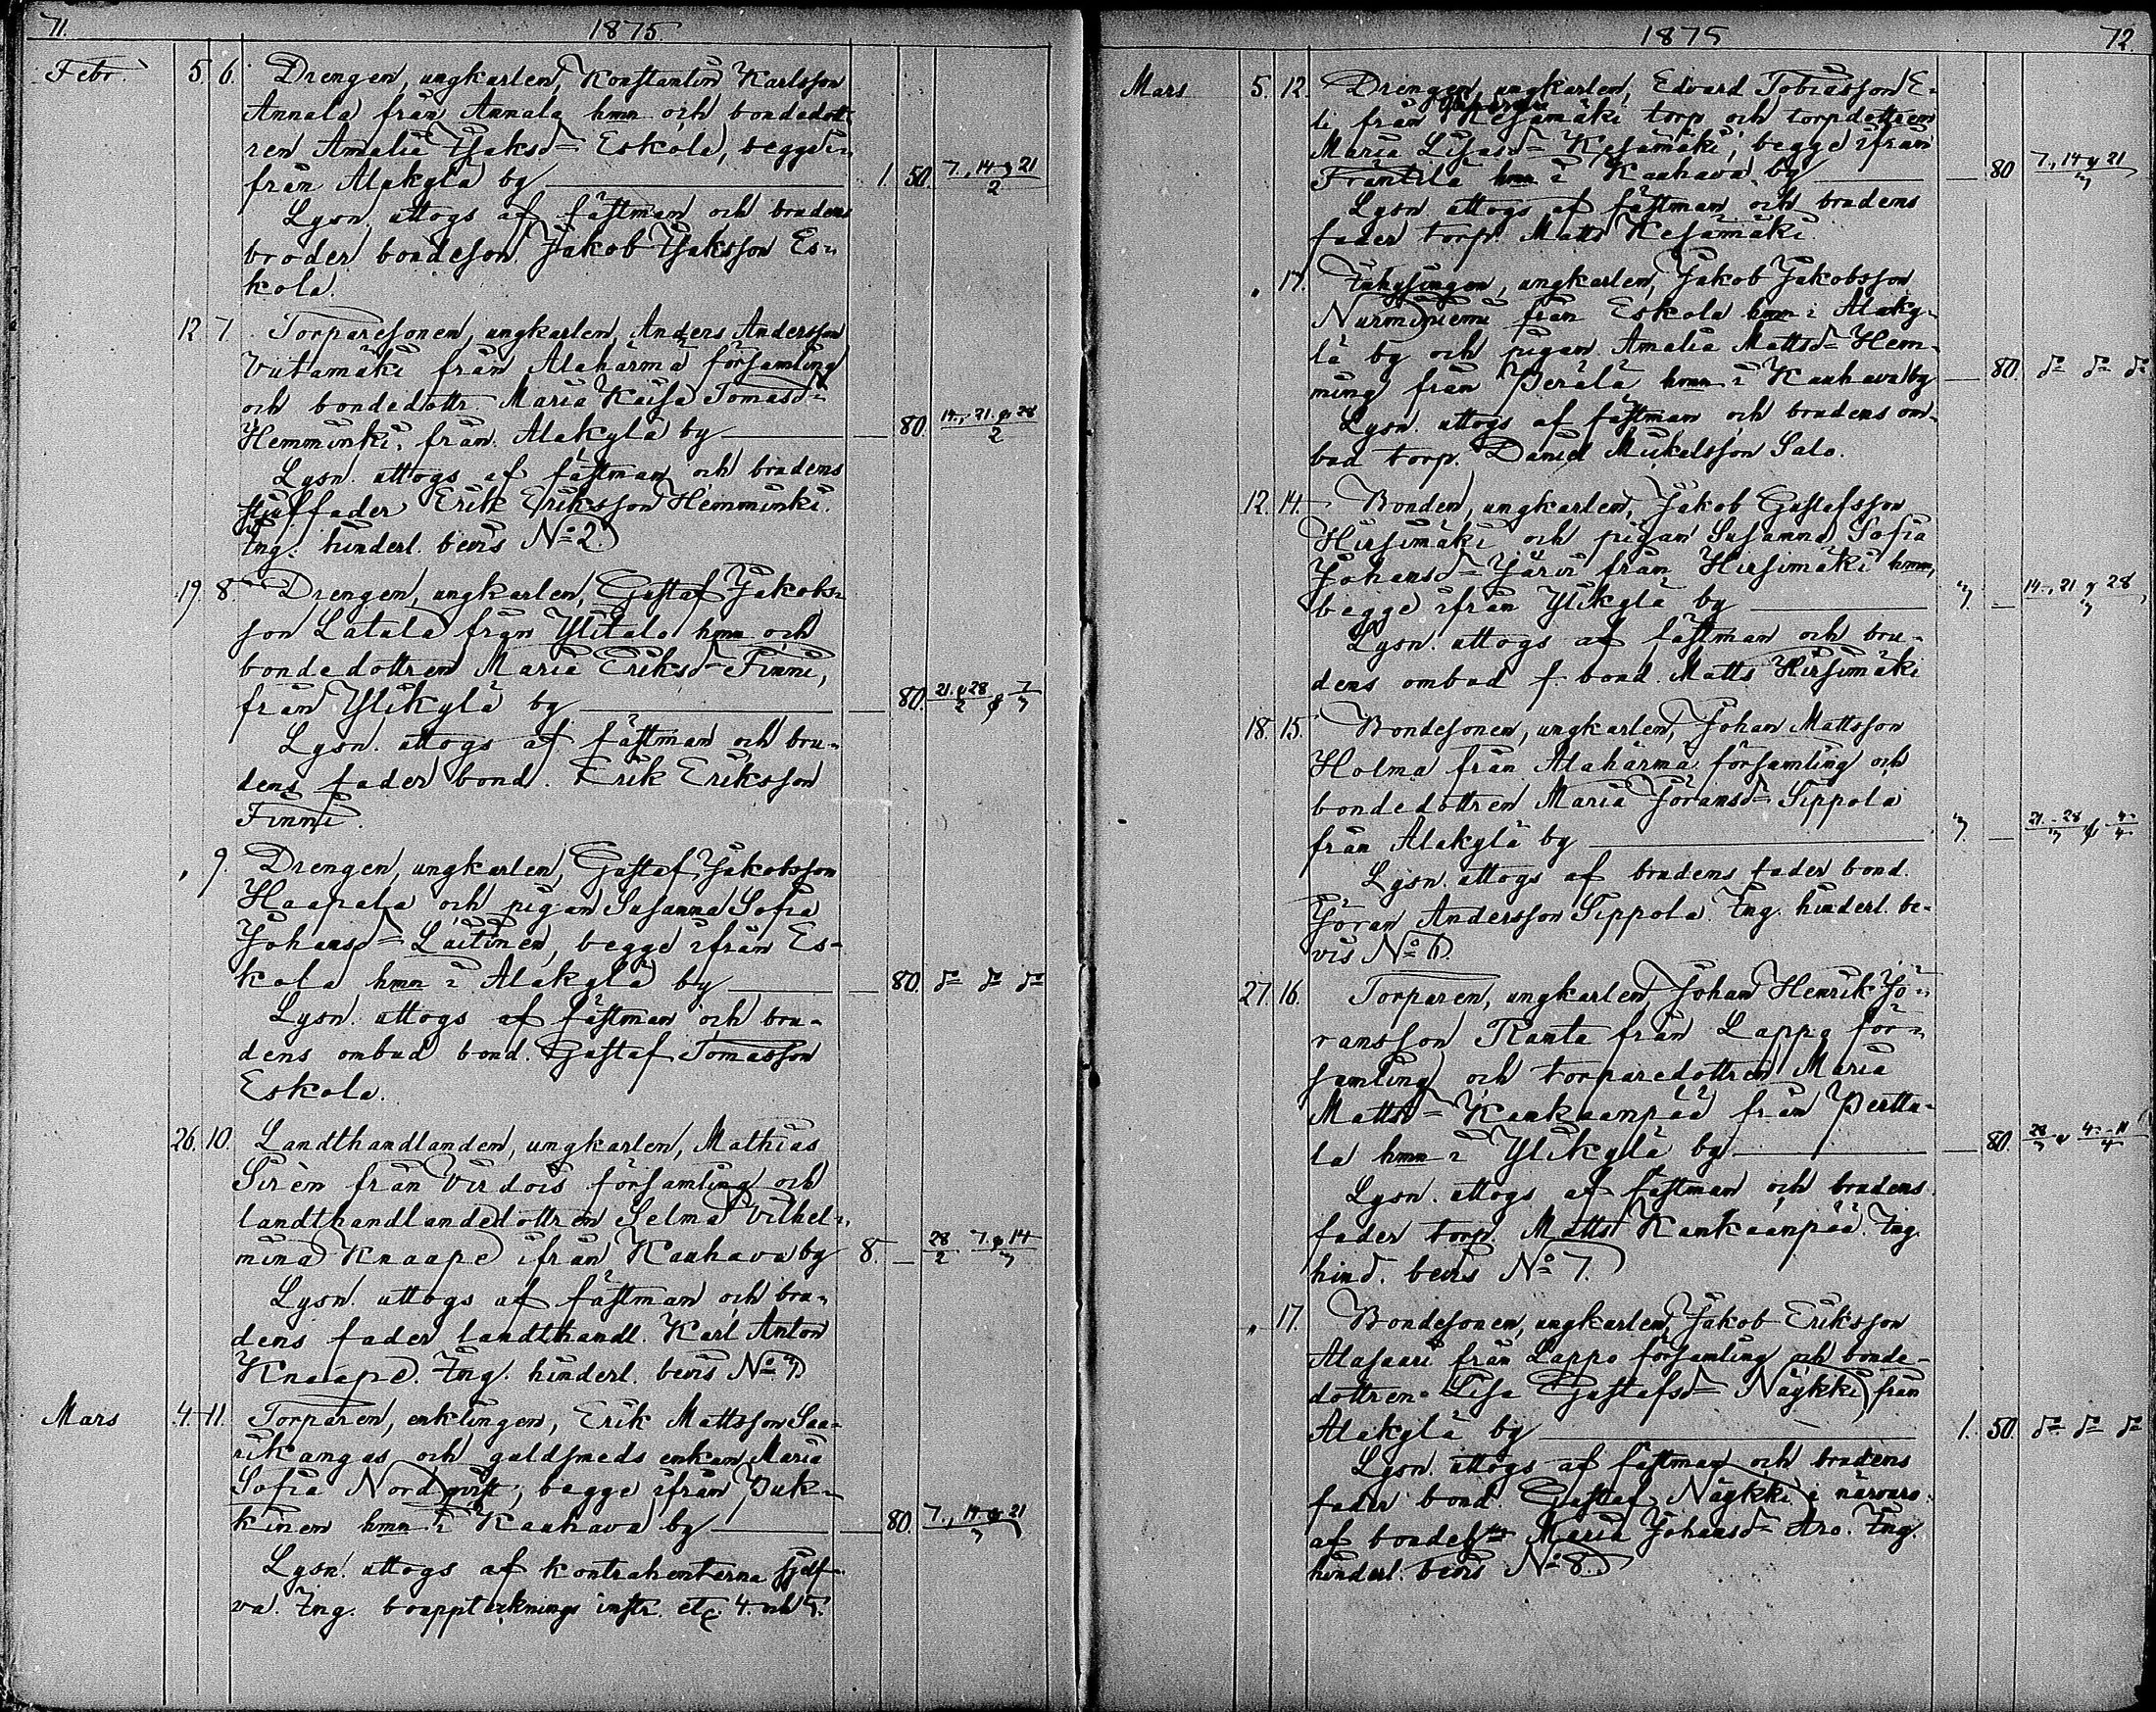 71. 1875.
Febr. 5. 6. Drengen, ungkarlen, Konstantin Karlsson
Annala från Annala hmn och bondedott-
ren Amalia Isaksd= Eskola, begge i-
från Alakylä by 1. 50. 7., 14 & 21/2
Lysn. uttogs af fästman och brudens
broder bondeson. Jakob Isaksson Es-
kola.
12. 7. Torparesonen, ungkarlen, Anders Andersson
Viitamäki från Alahärmä församling
och bondedottr. Maria Kaisa Tomasd=
Hemminki, från Alakylä by — 80. 14., 21. & 28/2
Lysn. uttogs af fästman och brudens
stjuffader Erik Eriksson Hemminki.
Ing. hinderl. bevis No 2.
19. 8. Drengen, ungkarlen, Gustaf Jakobs-
son Latala från Ylitalo hmn och
bondedottren Maria Eriksd= Finni,
från Ylikylä by — 80. 21. & 28/2 & 7/3
Lysn. uttogs af fästman och bru-
dens fader bond. Erik Eriksson
Finni.
" 9. Drengen, ungkarlen, Gustaf Jakobsson
Haapala och pigan Susanna Sofia
Johansd= Laitinen, begge ifrån Es-
kola hmn i Alakylä by — 80. d= d= d=
Lysn. uttogs af fästman och bru-
dens ombud bond. Gustaf Tomasson
Eskola.
26. 10. Landthandlanden, ungkarlen, Mathias
Sirén från Virdois församling och
landthandlandedottren Selma Vilhel-
mina Knaape ifrån Kauhava by 8. — 28/2 7 & 14/3
Lysn. uttogs af fästman och bru-
dens fader landthandl. Karl Anton
Knaape. Ing. hinderl. bevis No 3
Mars 4. 11. Torparen, enklingen, Erik Mattsson Saa-
rikangas och guldsmeds enkan Maria
Sofia Nordqvist, begge ifrån Puk-
kinen hmn i Kauhava by — 80. 7., 14 & 21/3
Lysn. uttogs af kontrahenterna sjelf-
va. Ing. bouppteknings instr. etc. 4. och 5.
1875 72.
Mars 5. 12. Drengen, ungkarlen, Edvard Tobiasson E-
li från Kesämäki torp och torpdottren
Maria Lisasd= Kesämäki, begge ifrån
Fräntilä hmn i Kauhava by — 80 7., 14 & 21/3
Lysn. uttogs af fästman och brudens
fader torp. Matts Kesämäki.
" 13. Inhysingen, ungkarlen, Jakob Jakobsson
Nurminiemi från Eskola hmn i Alaky-
lä by och pigan Amalia Mattsd= Hem-
ming från Perälä hmn i Kauhava by — 80. d= d= d=
Lysn. uttogs af fästman och brudens om-
bud torp. Daniel Mickelsson Salo.
12. 14. Bonden, ungkarlen, Jakob Gustafsson
Hirsimäki och pigan Susanna Sofia
Johansd= Järvi från Hirsimäki hmn,
begge ifrån Ylikylä by 3. — 14., 21 & 28/3
Lysn. uttogs af fästman och bru-
dens ombud f. bond. Matts Hirsimäki
18. 15. Bondesonen, ungkarlen, Johan Mattsson
Holma från Alahärmä församling och
bondedottren Maria Jöransd= Sippola
från Alakylä by 3. — 21. 28/3 & 4/4
Lysn. uttogs af brudens fader bond.
Jöran Andersson Sippola. Ing. hinderl. be-
vis No 6.
27. 16. Torparen, ungkarlen, Johan Henrik Jö-
ransson Ranta från Lappo för-
samling och torparedottren Maria
Mattsd= Kankaanpää från Perttu-
la hmn i Ylikylä by — 80. 28/3 & 4. 11/4
Lysn. uttogs af fästman och brudens
fader torp. Matts Kankaanpää. Ing.
hind. bevis No 7.
" 17. Bondesonen, ungkarlen, Jakob Eriksson
Alasaari från Lappo församling och bonde-
dottren Lisa Gustafsd= Näykki från
Alakylä by 1. 50. d= d= d=
Lysn. uttogs af fästman och brudens
fader bond. Gustaf Näykki i närvaro
af Maria Johansd= Aro. Ing.
hinderl. bevis No 8.